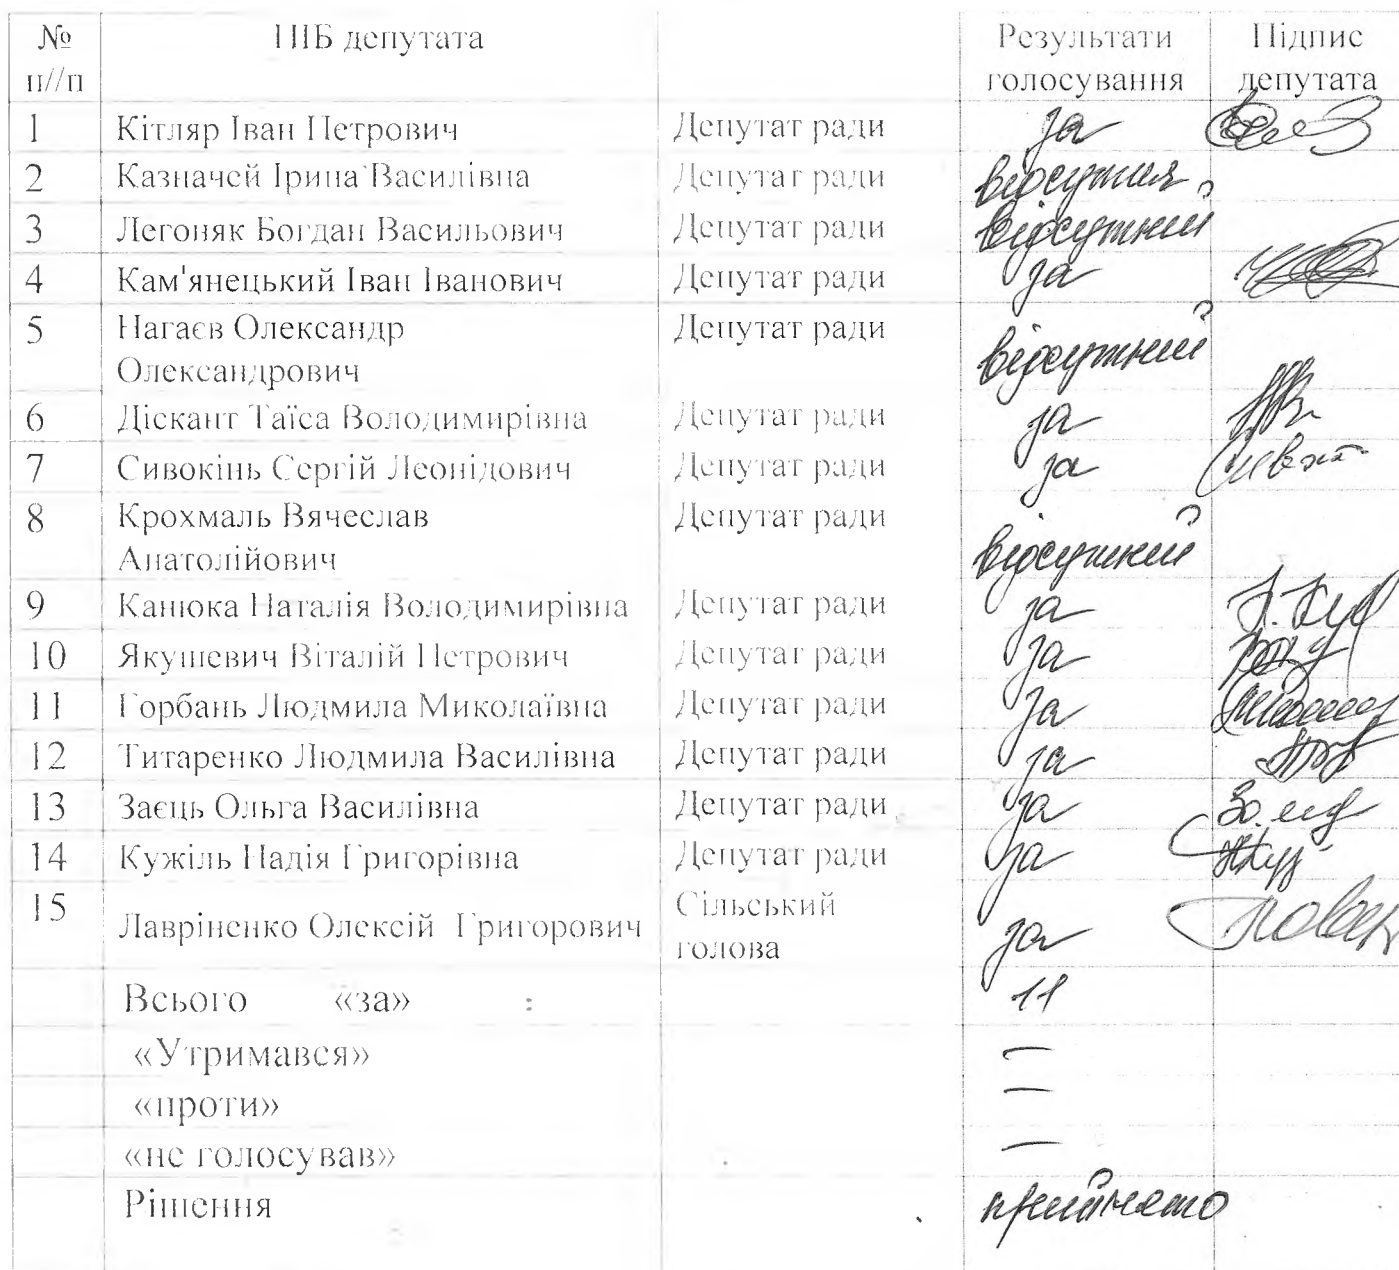 № ПІБ депутата Результати Підпис
п//п голосування депутата
1 Кітляр Іван Петрович Депутат ради за
2 Казначей Ірина Василівна Депутат ради відсутня
3 Легоняк Богдан Васильович Депутат ради відсутній
4 Кам'янецький Іван Іванович Депутат ради за
5 Нагаєв Олександр Депутат ради
Олександрович відсутній
6 Діскант Таїса Володимирівна Депутат ради за
7 Сивокінь Сергій Леонідович Депутат ради за
8 Крохмаль Вячеслав Депутат ради
Анатолійович відсутній
9 Канюка Наталія Володимирівна Депутат ради за
10 Якушевич Віталій Петрович Депутат ради за
11 Горбань Людмила Миколаївна Депутат ради за
12 Титаренко Людмила Василівна Депутат ради за
13 Заєць Ольга Василівна Депутат ради за
14 Кужіль Надія Григорівна Депутат ради за
15 Сільський
Лавріненко Олексій Григорович голова за
Всього «за» : 11
«Утримався» —
«проти» —
«не голосував» —
Рішення прийнято